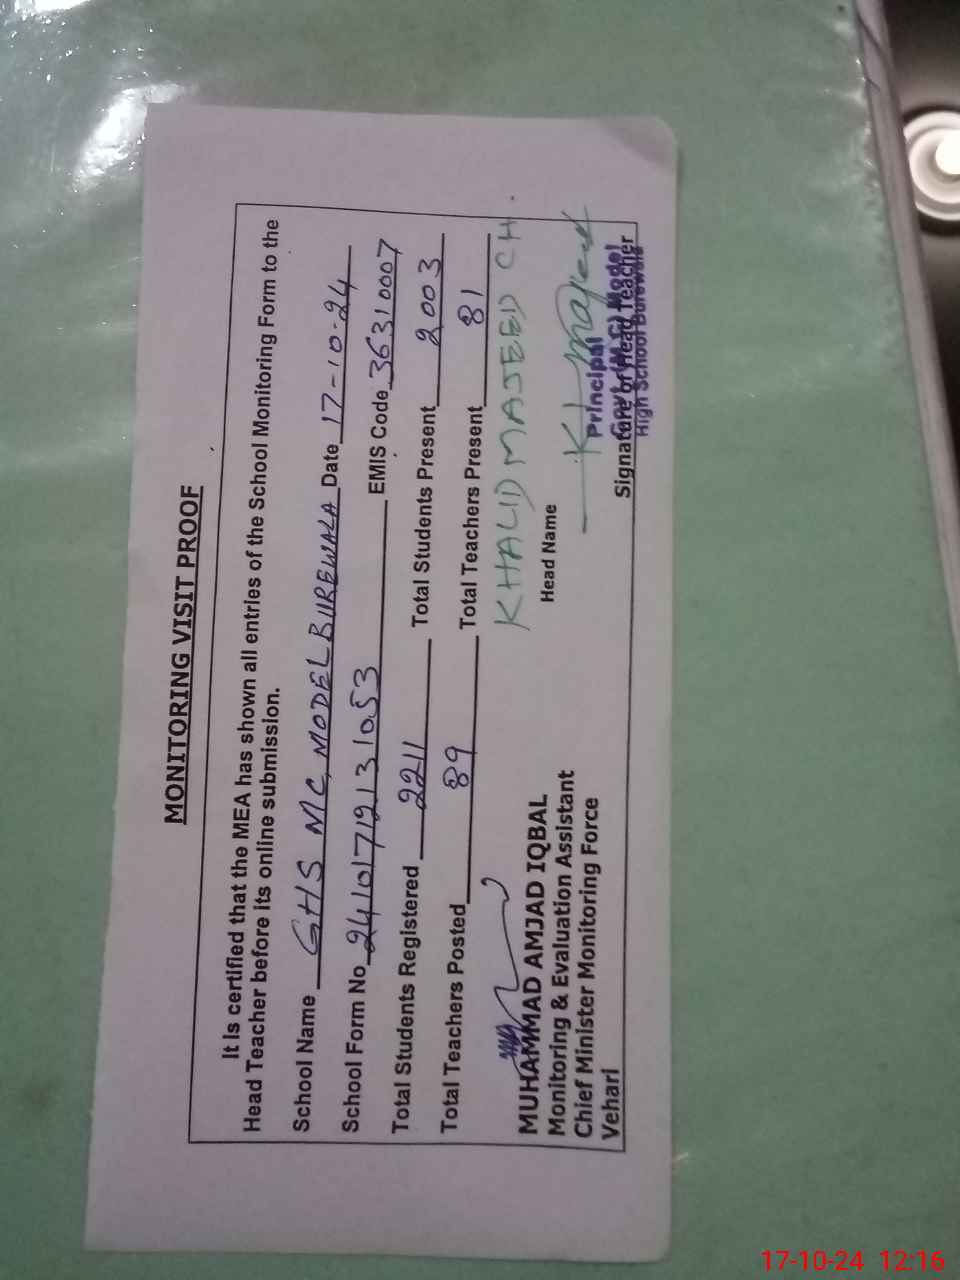 MONITORING VISIT PROOF
It Is certified that the MEA has shown all entries of the School Monitoring Form to the
Head Teacher before its online submission.
School Name GHS M/C, MODEL BUREWALA Date 17-10-24
School Form No 24101712131053 EMIS Code 36310007
Total Students Registered 2211 Total Students Present 2003
Total Teachers Posted 89 Total Teachers Present 81
KHALID MAJEED CH.
Head Name
MUHAMMAD AMJAD IQBAL
Monitoring & Evaluation Assistant
Chief Minister Monitoring Force
Vehari
Principal
Govt. (M.C) Model
Signature of Head Teacher
High School Burewala
17-10-24 12:16